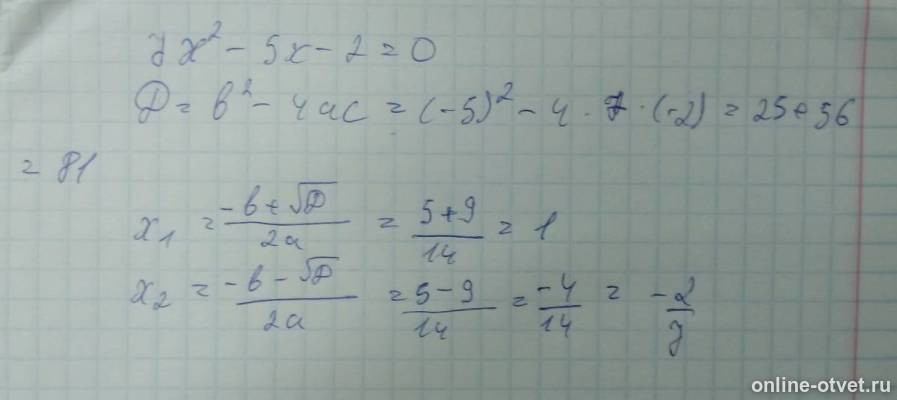 7x² - 5x - 2 = 0
D = b² - 4ac = (-5)² - 4 · 7 · (-2) = 25 + 56
= 81
x₁ = (-b + √D)/(2a) = (5 + 9)/14 = 1
x₂ = (-b - √D)/(2a) = (5 - 9)/14 = -4/14 = -2/7
online-otvet.ru